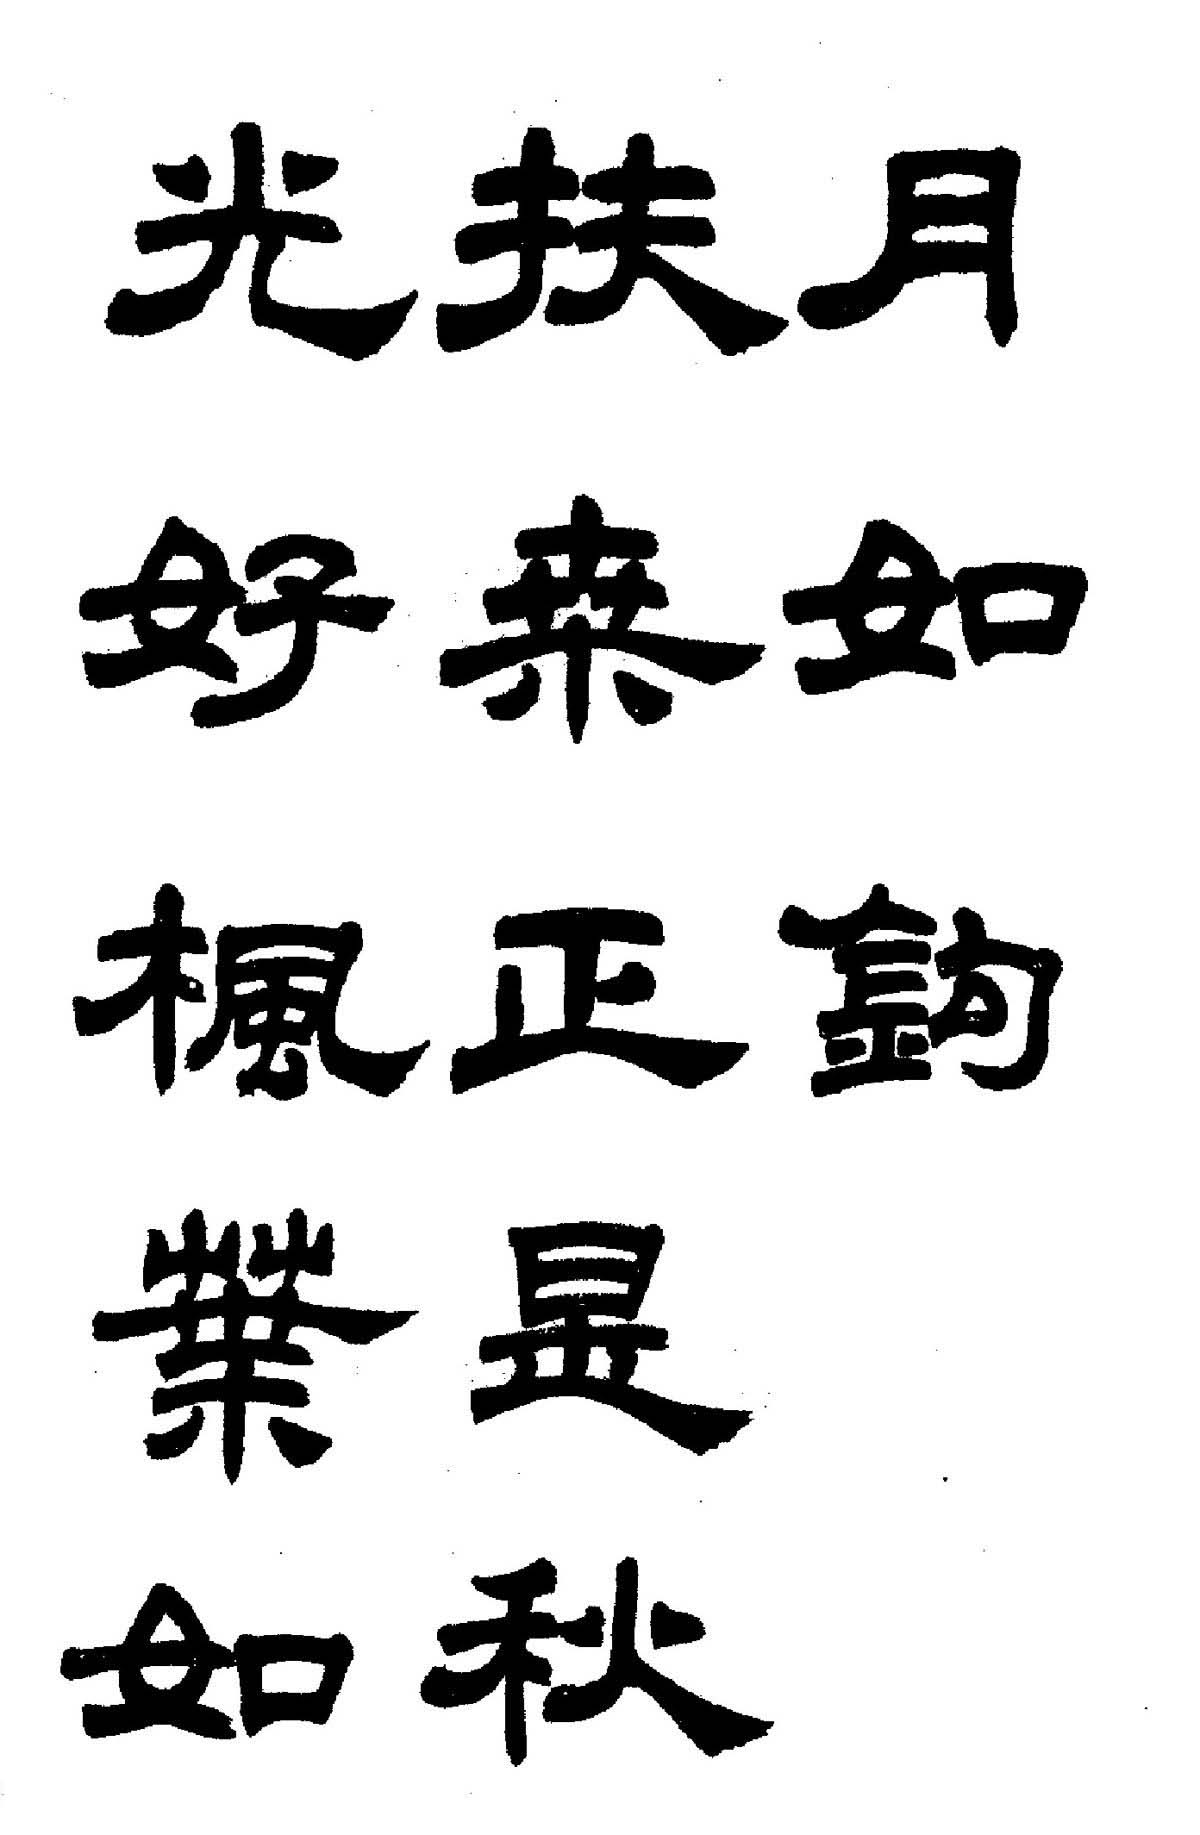 月如鉤
扶桒正是秋
光好楓葉如